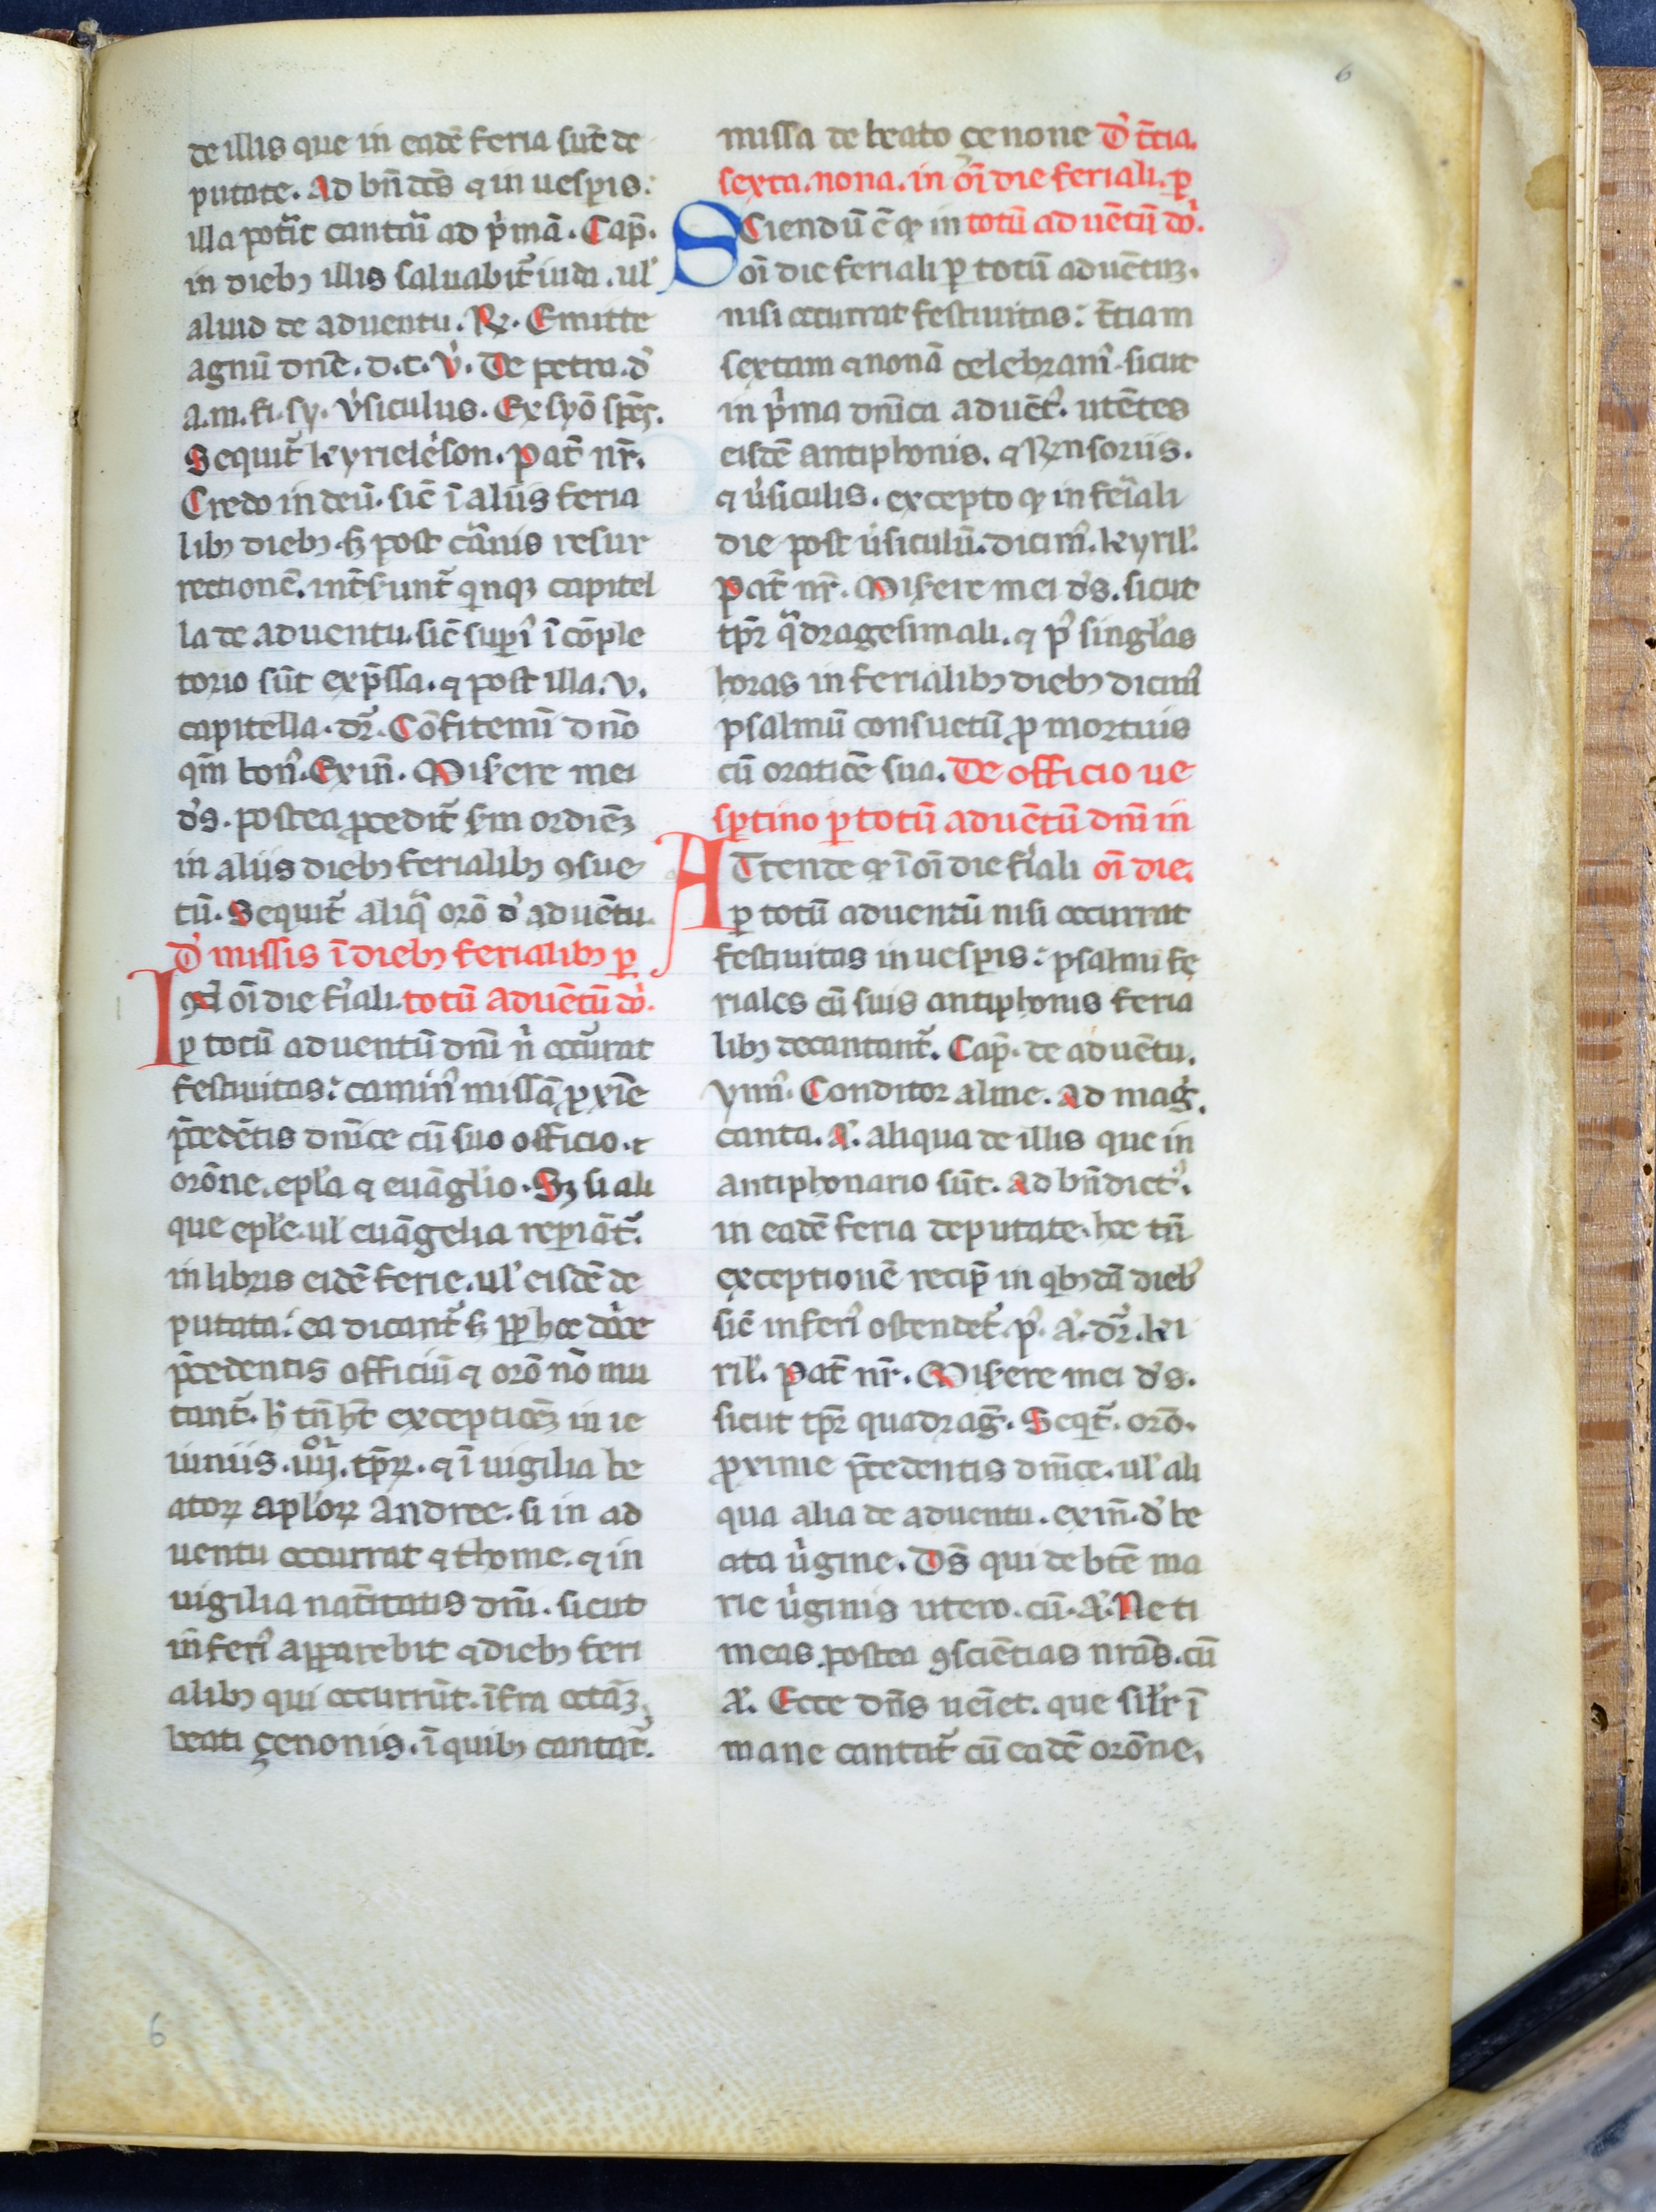 6
de illis que in eadē feria sūt de
putate. Ad bn̄dc̄s ⁊ in uespis.
illa pot̄it cantari ad p̍mā. Cap̄.
in dieb; illis saluabit̄ iuda. ul̍
aliud de aduentu. R̸. Emitte
agnū dn̄e. d. t. v̍. De petra. d̍
a. m. fi. sy. v̍siculus. Ex syō sp̄ēs.
Sequit̄ kyrieleison. Pat̄ nr̄.
Credo in deū. sic̄ ī aliis feria
lib; dieb;. s; post carnis resur
rectionē. int̄serunt̄ q̍nq; capitel
la de aduentu. sic̄ sup̍i ī cōple
torio sūt exp̄ssa. ⁊ post illa. v.
capitella. dr̄. Cōfitemī dn̄o
qm̄ bon̍. Exin̄. Misere mei
d̍s. postea p̱cedit̄ s̄m ordinē
in aliis dieb; ferialib; ꝯsue
tū. Sequit̄ aliq̄ orō d̍ aduētu.
D̍ missis ī dieb; ferialib; ꝑ
totū aduētū dō.
I oī die fīali.
ꝑ totū aduentū dn̄i n̍ occurrat
festiuitas: ca missā ꝓxīe
p̄cedētis dn̄ice cū suo officio. ⁊
orōne. epl̄a ⁊ euāglio. S; si ali
que epl̄e. ul̍ euāgelia repiāt̄.
in libris eidē ferie. ul̍ eisdē de
putata: ea dicant̄ s; ꝓp̄ hoc
p̄cedentis officiū ⁊ orō nō mu
tant̄. h̍ tn̄ h̄t exceptionē in ie
iuniis. iiij. tp̄rꝝ. ⁊ ī uigilia be
atoꝝ apl̄oꝝ Andree. si in ad
uentu occurrat ⁊ thome. ⁊ in
uigilia natiuitatis dn̄i. sicut
inferi̍ apparebit ⁊ dieb; feri
alib; qui occurrūt. īfra octāȝ
beati çenonis. ī quib; cantat̄.
missa de beato çenone D̍ t̄cia.
sexta. nona. in oī die feriali. ꝑ
totū aduētū dō.
SCiendū ē ꝙ in
oī die feriali ꝑ totū aduētuȝ.
nisi occurrat festiuitas: t̄ciam
sextam ⁊ nonā celebram̍. sicut
in p̍ma dn̄ica aduēt̍. utētes
eisdē antiphonis. ⁊ R̸nsoriis.
⁊ u̍siculis. excepto ꝙ in feriali
die post u̍siculū. dicim̍. kyril̍.
Pat̄ nr̄. Misere mei d̍s. sicut
tp̄r q̄dragesimali. ⁊ p̍ singl̍as
horas in ferialib; dieb; dicim̍
psalmū consuetū ꝓ mortuis
cū oratiōe sua. De officio ue
sꝑtino ꝑ totū aduētū dn̄i in
oī die.
ATtende ꝙ ī oī die fīali
ꝑ totū aduentū nisi occurrat
festiuitas in uespis: psalmi fe
riales cū suis antiphonis feria
lib; decantant̄. Cap̄. de aduētu.
Ymn̍. Conditor alme. Ad mag̍.
canta. A̍. aliqua de illis que in
antiphonario sūt. Ad bn̄dict̍.
in eadē feria deputate. hoc tn̄
exceptionē recip̄ in q̍b;dā dieb̍
sic̄ inferi̍ ostendet̄. p̍. a̍. dr̄. ki
ril̍. Pat̄ nr̄. Misere mei d̍s.
sicut tp̄r quadrag̍. Seqt̄. orō.
ꝓxime p̄cedentis dn̄ice. ul̍ ali
qua alia de aduentu. exin̄. d̍ be
ata u̍gine. D̄s qui de bt̄e ma
rie u̍ginis utero. cū. a̍. Ne ti
meas. postea ꝯsciētias nr̄as. cū
a̍. Ecce dn̄s ueiet. que sil̍r ī
mane cantat̄ cū eadē orōne.
6